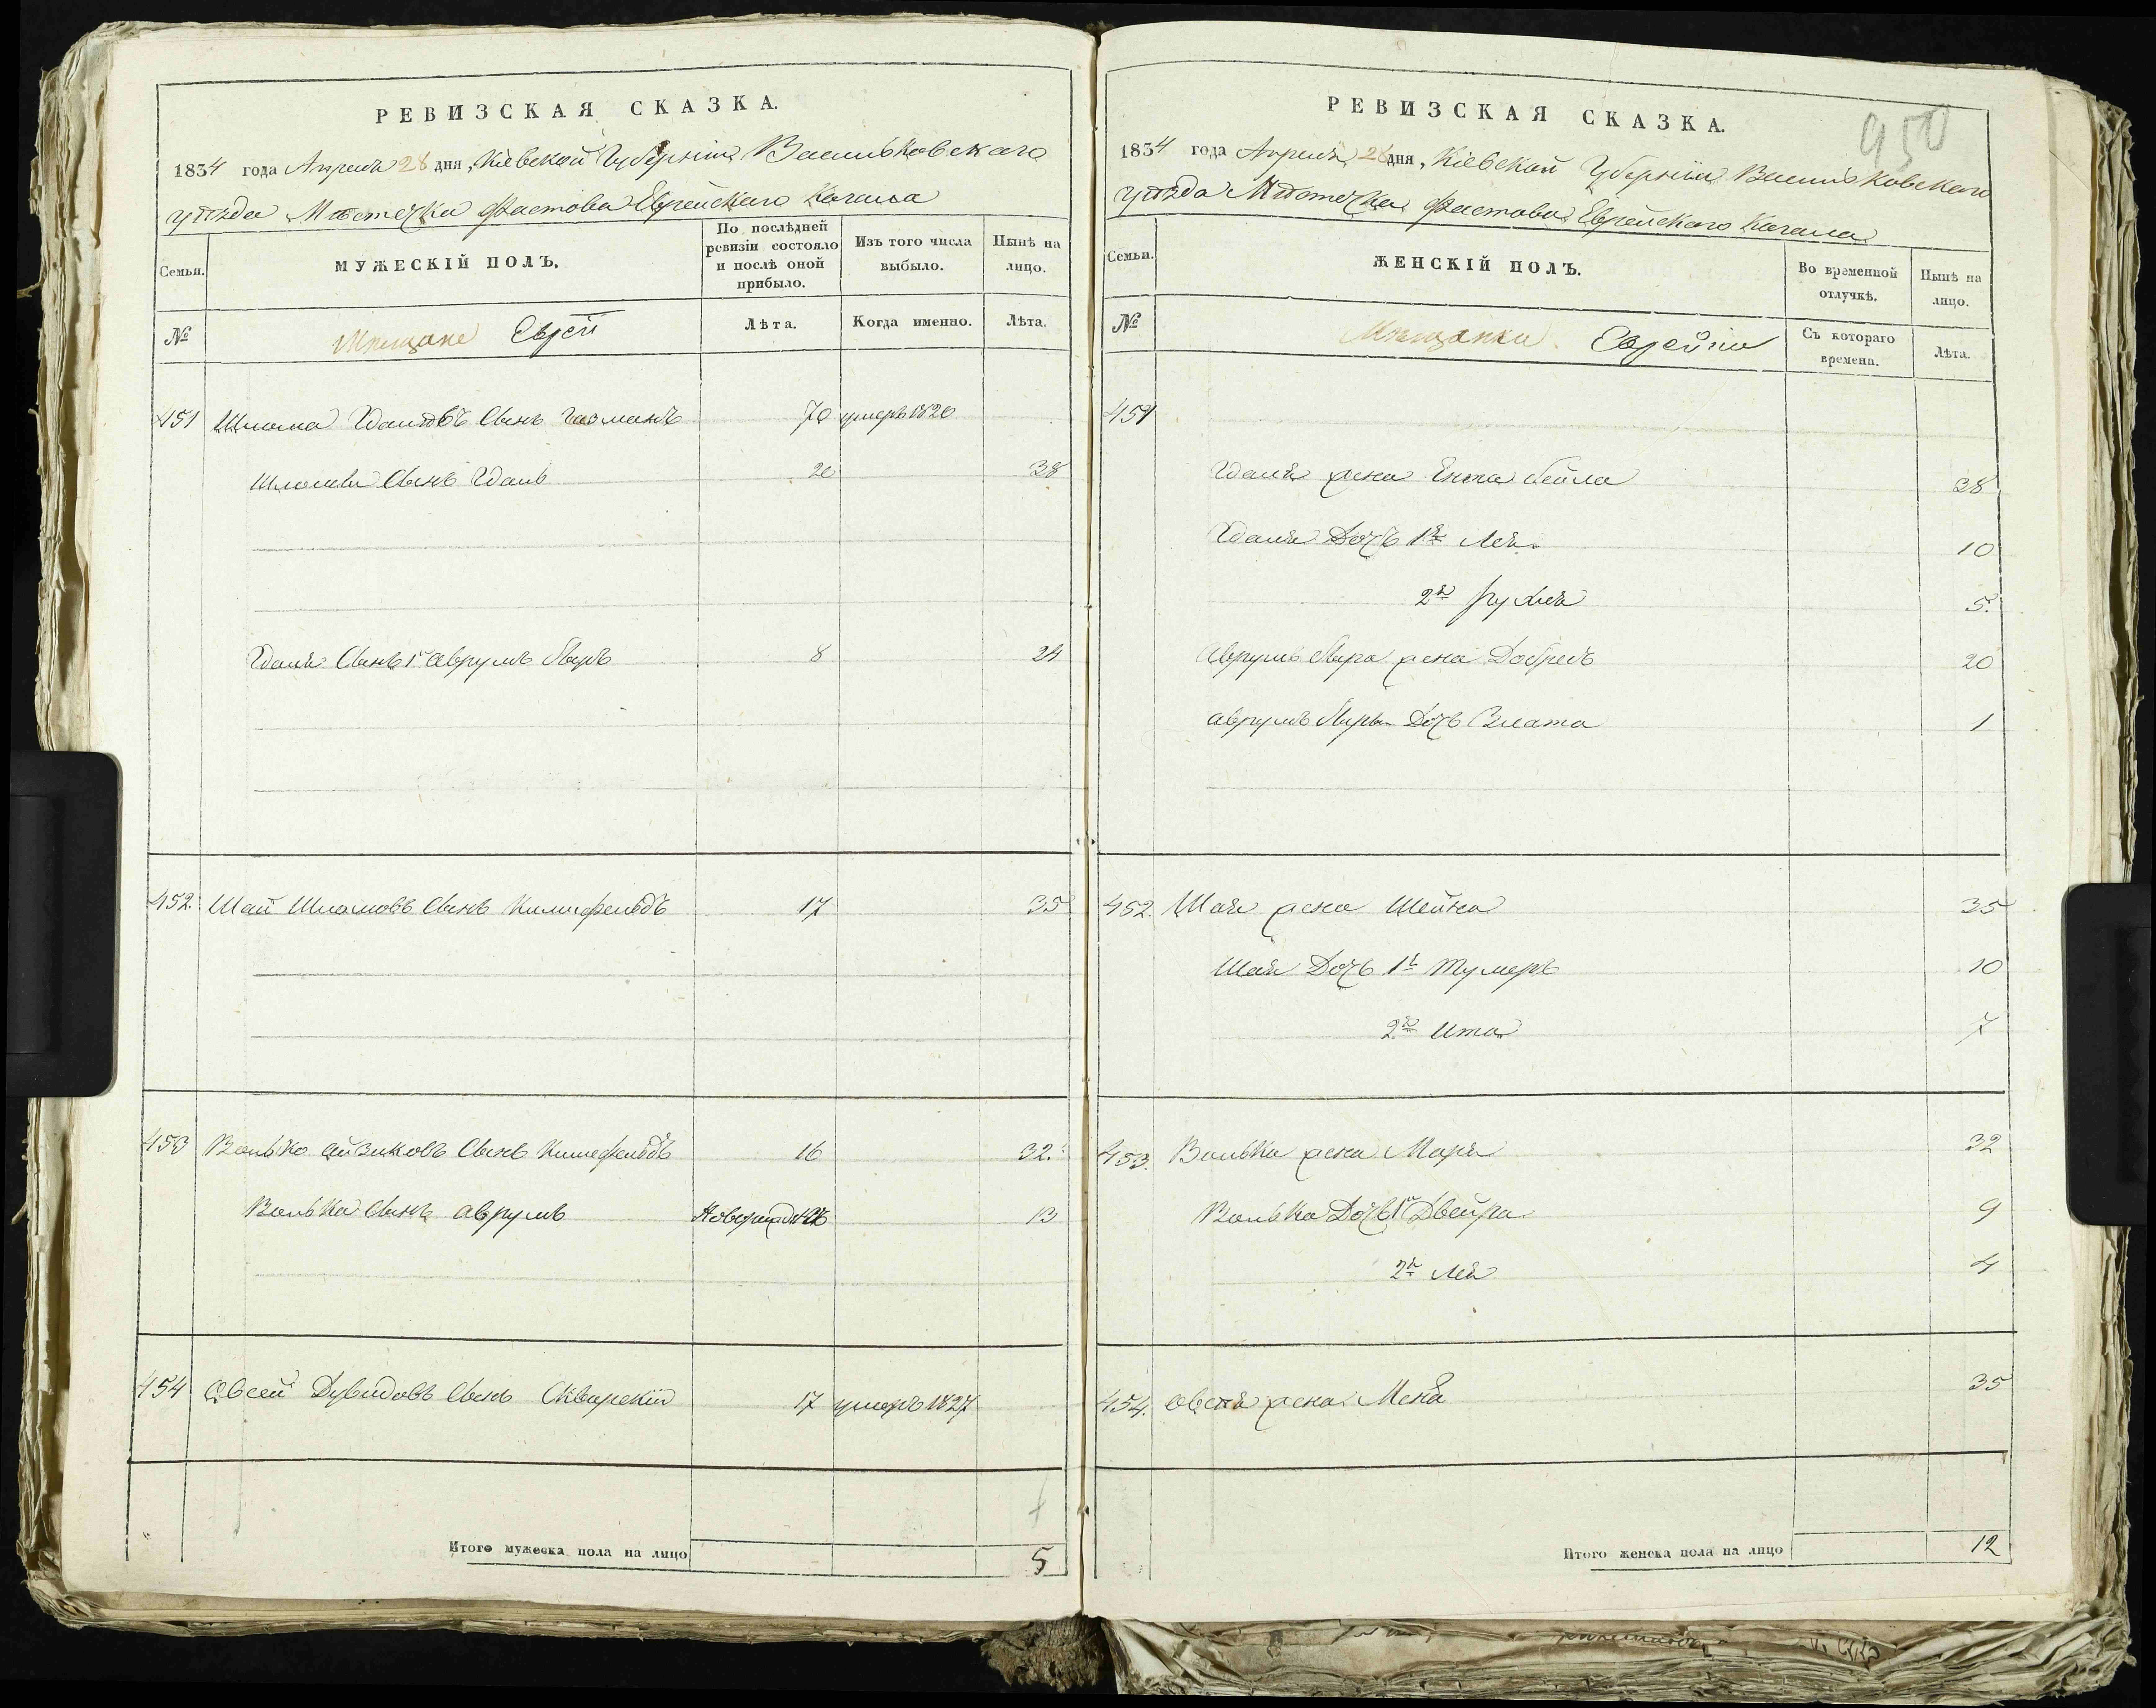 РЕВИЗСКАЯ СКАЗКА.
1834 года Апреля 28 дня, Кіевской Губерніи Васильковскаго
уѣзда Мѣстечка Фастова Еврейскаго Кагала
Семьи.
МУЖЕСКІЙ ПОЛЪ.
По послѣдней ревизіи состояло и послѣ оной прибыло.
Изъ того числа выбыло.
Нынѣ на лицо.
№
Мѣщане Евреи
Лѣта.
Когда именно.
Лѣта.
451 Шлома сынъ 70 умеръ 1820
Шломы сынъ 20 38
сынъ 1й Аврумъ Беръ 8 24
452. Шая Шломовъ сынъ 17 35
453 Волько Айзиковъ сынъ 16 32.
Волька сынъ Аврумъ 13
454 Овсей Дувидовъ сынъ Сквирскій 17 умеръ 1827
Итого мужеска пола на лицо 5
950
РЕВИЗСКАЯ СКАЗКА.
1834 года Апреля 28 дня, Кіевской Губерніи Васильковскаго
уѣзда Мѣстечка Фастова Еврейскаго Кагала
Семьи.
ЖЕНСКІЙ ПОЛЪ.
Во временной отлучкѣ.
Нынѣ на лицо.
№
Мѣщанки Еврейки
Съ котораго времени.
Лѣта.
451
жена Ента Бейла 38
дочь 1я Лея 10
2я Рухля 5.
Аврумъ Бера жена Добресъ 20
Аврумъ Бера дочь Злата 1
452. Шая жена Шейна 35
Шая дочь 1я 10
2я Ита 7
453. Волька жена Маря 32
Волька дочь 1я Двейра 9
2я Лея 4
454. Овсѣя жена 35
Итого женска пола на лицо 12